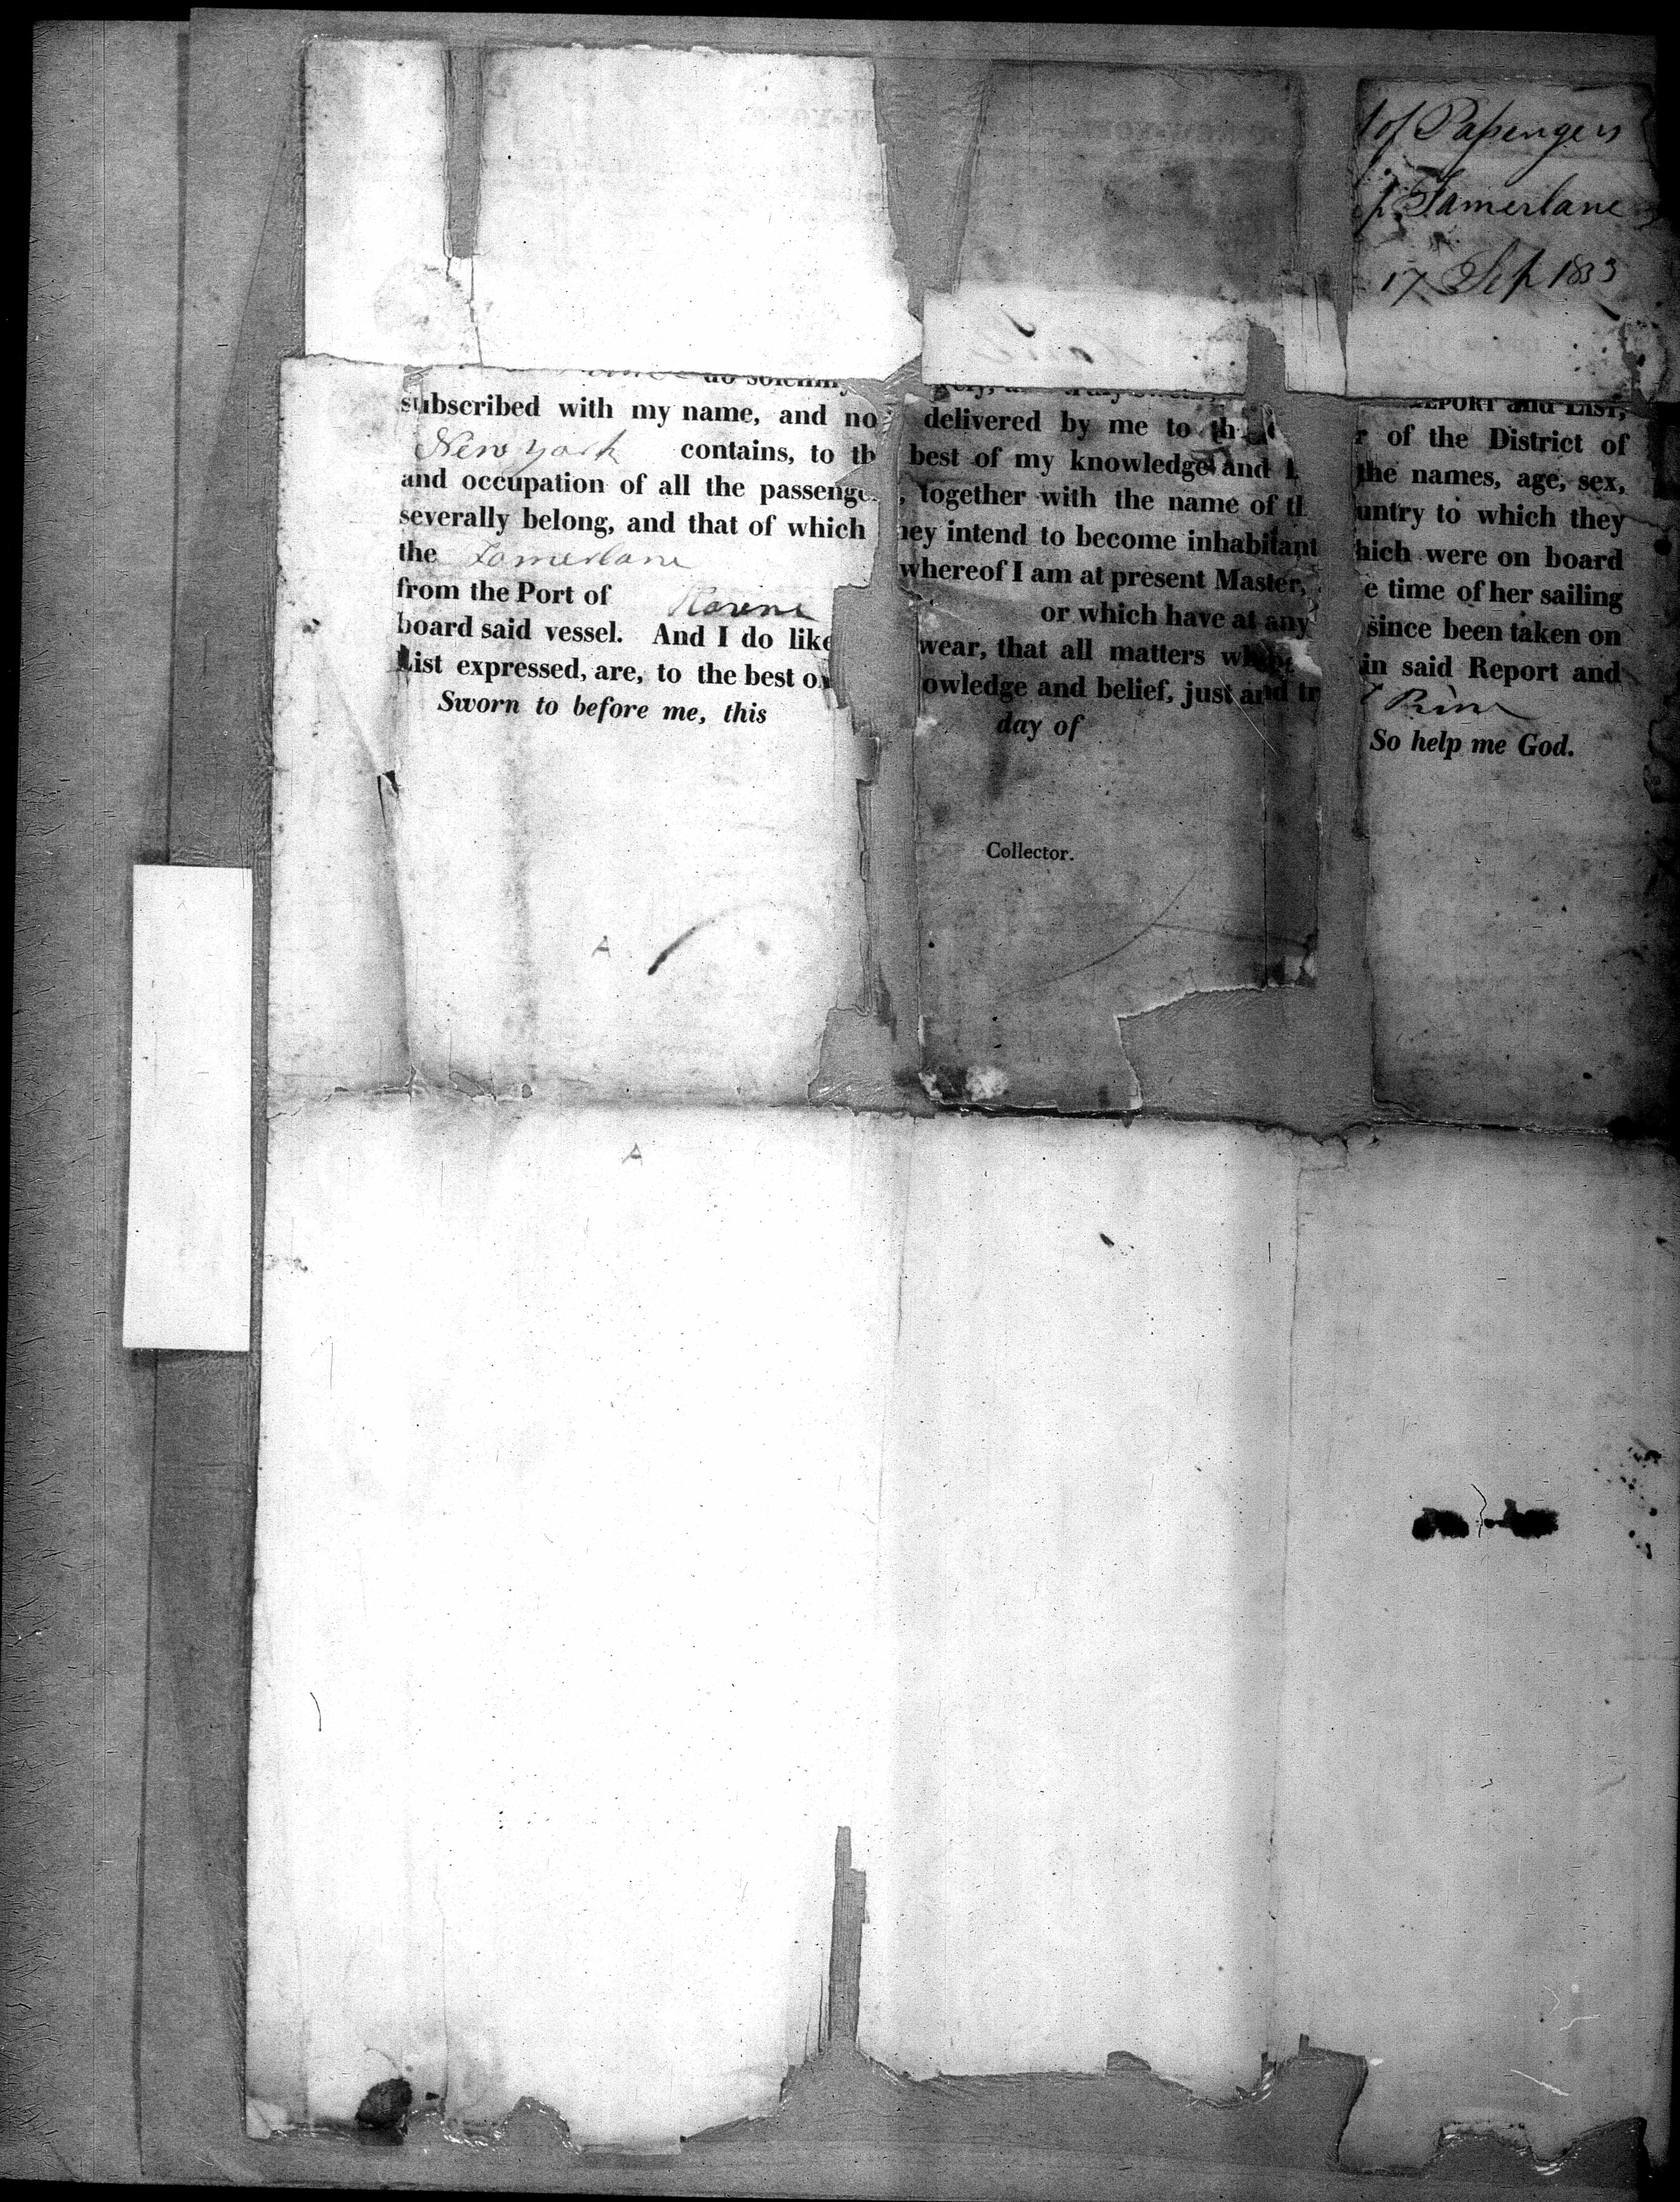 of Passengers
Tamerlane
17 Sep 1833
do solemn
REPORT and LIST,
subscribed with my name, and no delivered by me to th r of the District of
New York contains, to th best of my knowledge and the names, age, sex,
and occupation of all the passenge , together with the name of th untry to which they
severally belong, and that of which hey intend to become inhabitant hich were on board
the Tamerlane whereof I am at present Master, e time of her sailing
from the Port of Havre or which have at any since been taken on
board said vessel. And I do like wear, that all matters in said Report and
List expressed, are, to the best o owledge and belief, just and tr
Sworn to before me, this day of
So help me God.
Collector.
A
A